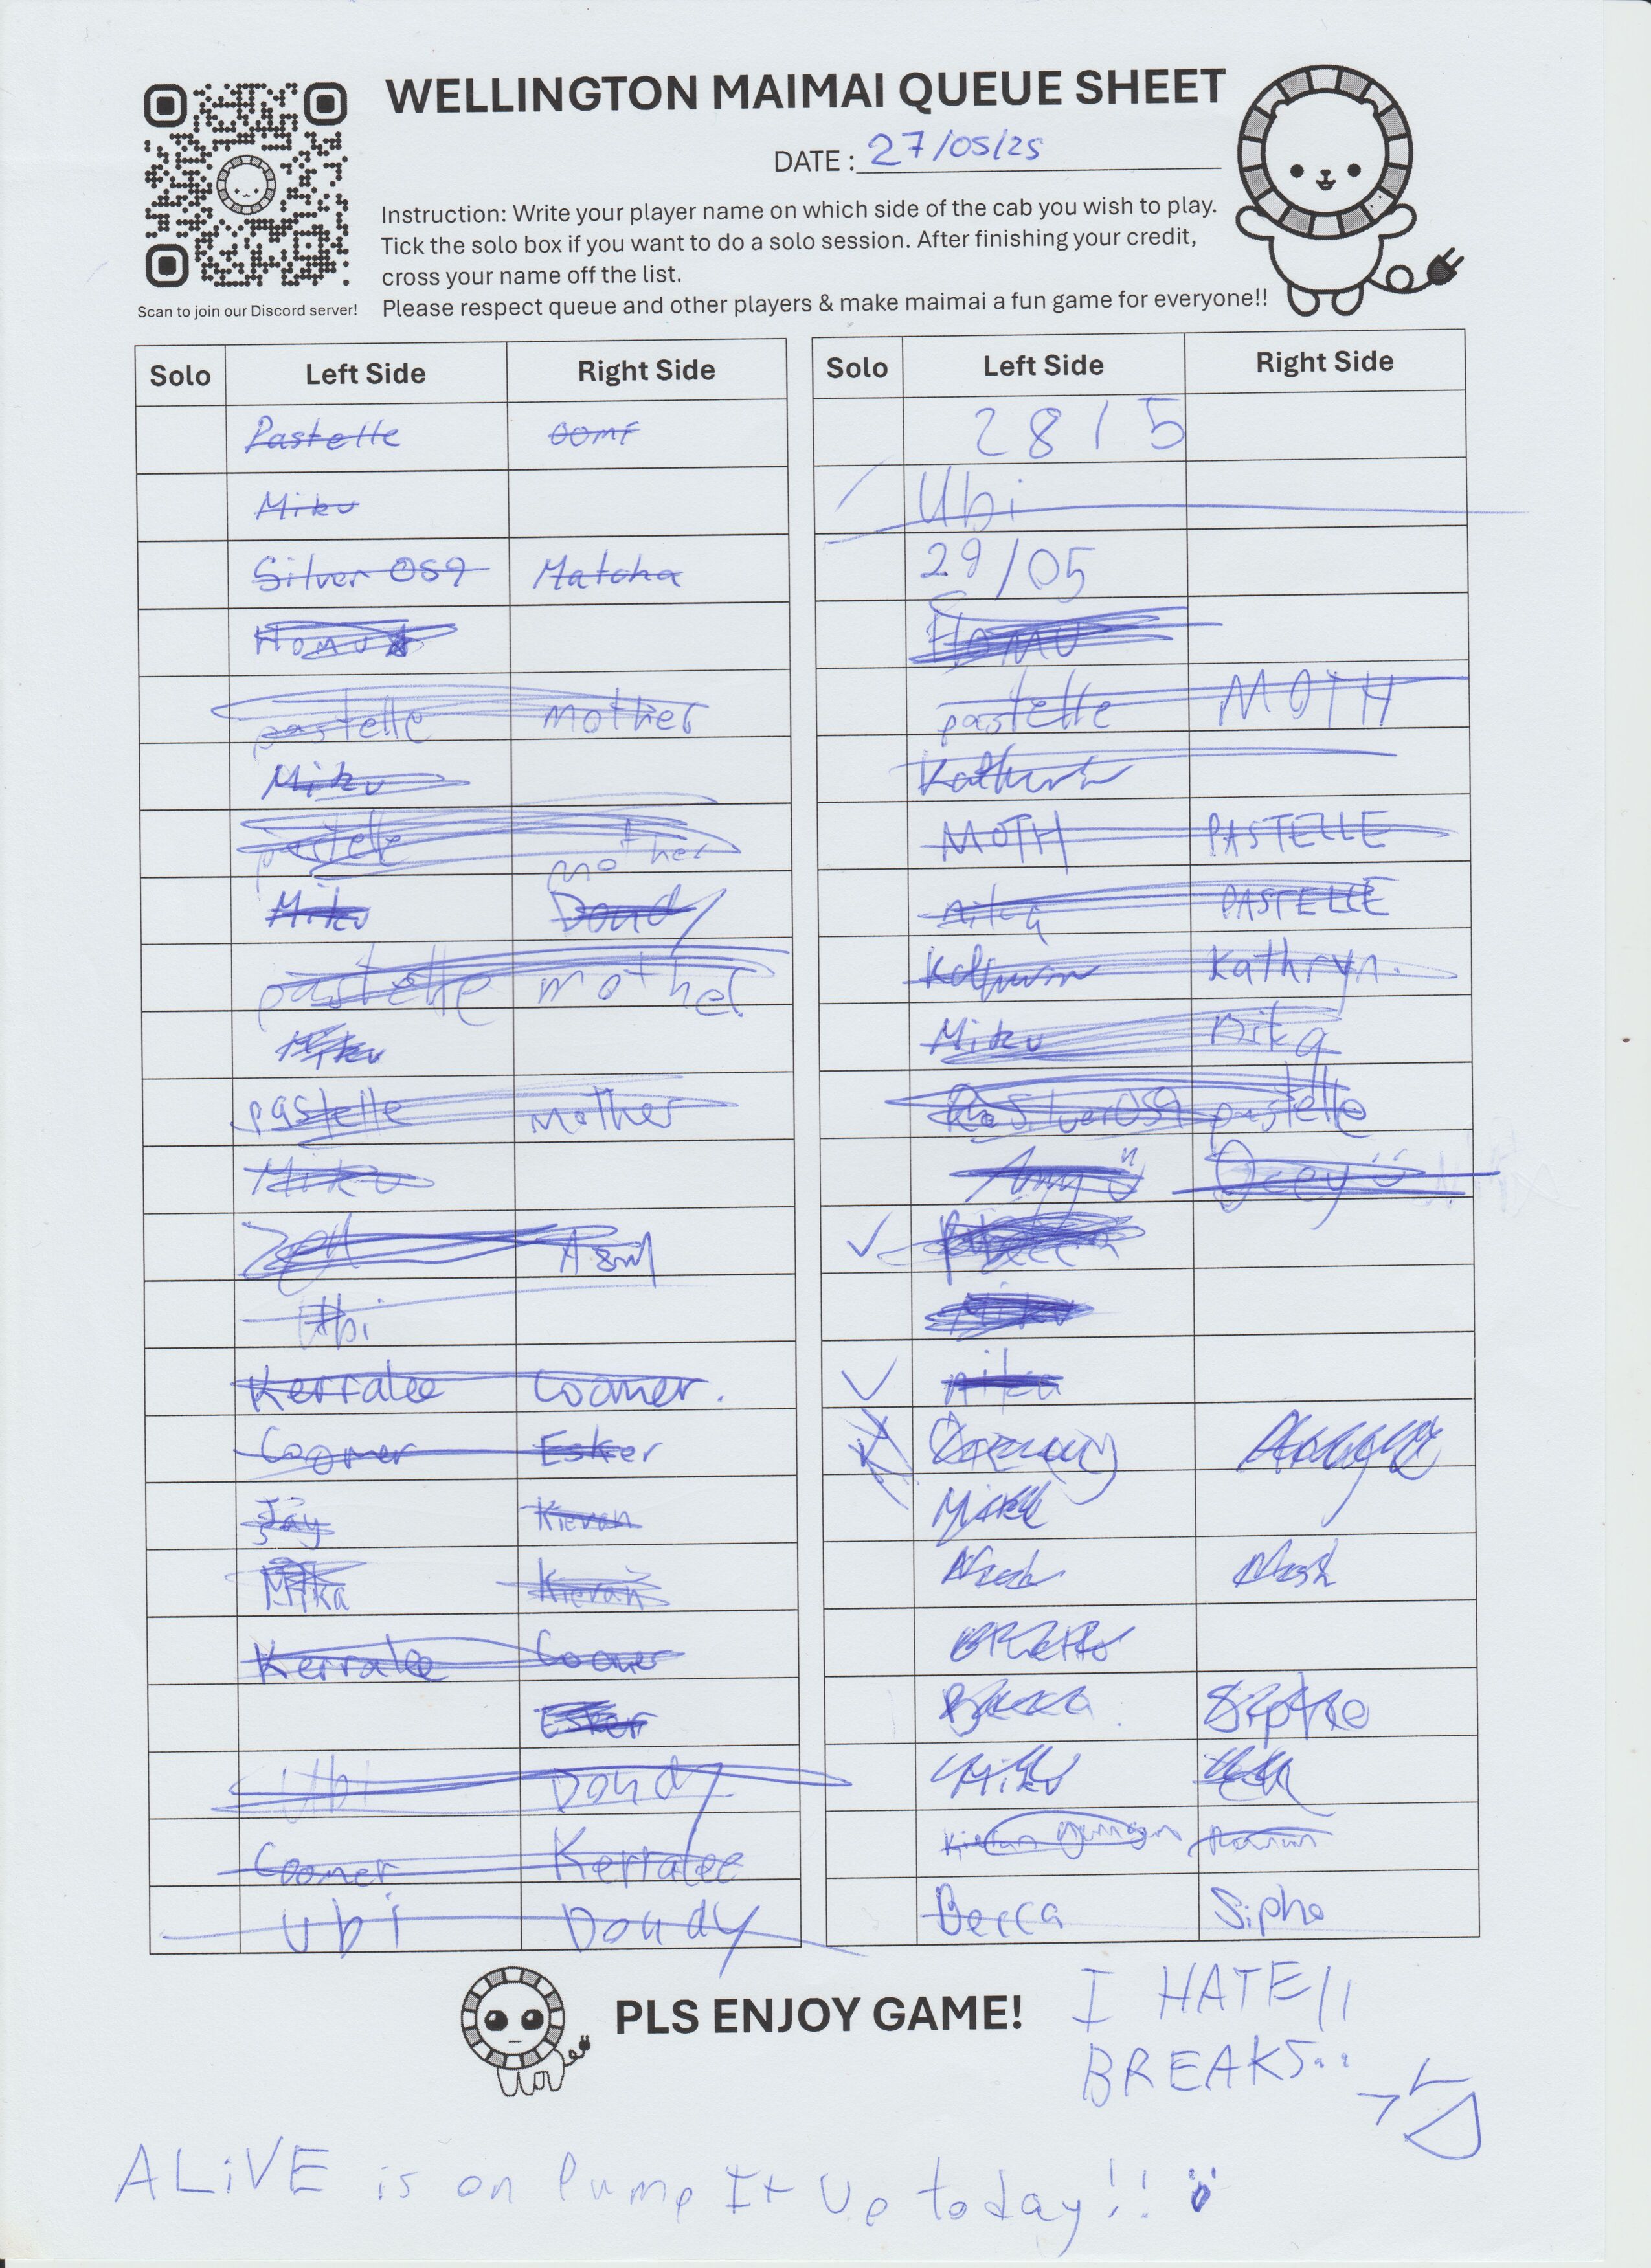 WELLINGTON MAIMAI QUEUE SHEET
DATE : 27/05/25
Instruction: Write your player name on which side of the cab you wish to play.
Tick the solo box if you want to do a solo session. After finishing your credit,
cross your name off the list.
Please respect queue and other players & make maimai a fun game for everyone!!
Scan to join our Discord server!
Solo Left Side Right Side
Pastelle oomf
Miku
Silver OS9 Matcha
Homu
pastelle mother
Miku
pastelle mother
Miku Doudy
pastelle mother
Miku
pastelle mother
Miku
Ubi
Kerralee Coomer.
Coomer Esker
Jay Kieran
Mika Kieran
Kerralee Coomer
Esker
Ubi Doudy
Coomer Kerralee
Ubi Doudy
Solo Left Side Right Side
28 / 5
Ubi
29/05
Homu
pastelle MOTH
MOTH PASTELLE
nika PASTELLE
Kathryn.
Miku nika
Silver OS9 pastelle
Amy
Becca
Miku
nika
Becca Sipho
Miku
Kieran
Becca Sipho
PLS ENJOY GAME!
I HATE!!
BREAKS..
ALiVE is on Pump It Up today!!